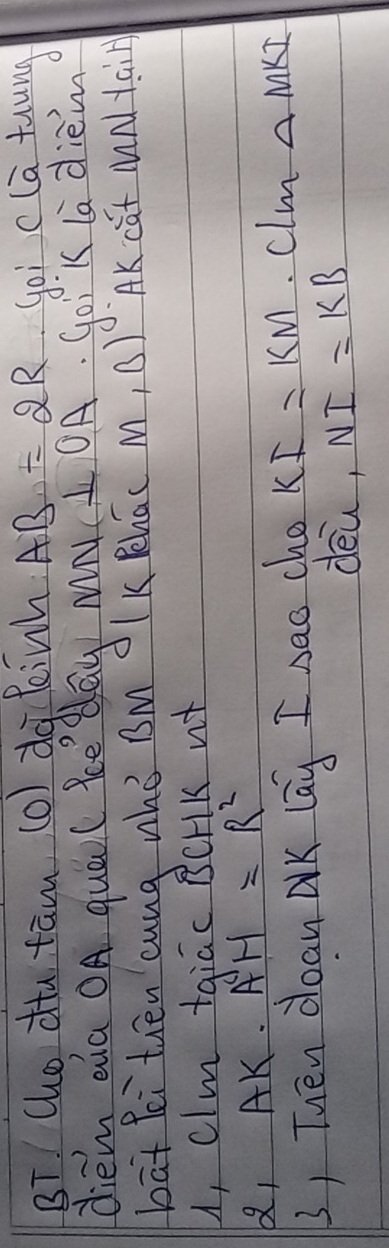 BT. Cho đtr tâm (O) đg kính AB = 2R. Gọi C là trung
điểm của OA qua C kẻ dây MN ⊥ OA. Gọi K là điểm
bất kì trên cung nhỏ BM (K khác M, B) AK cắt MN tại H
1, C/m tgiác BCHK nt
2, AK. AH = R²
3, Trên đoạn NK lấy I sao cho KI = KM. C/m Δ MKI
đều, NI = KB